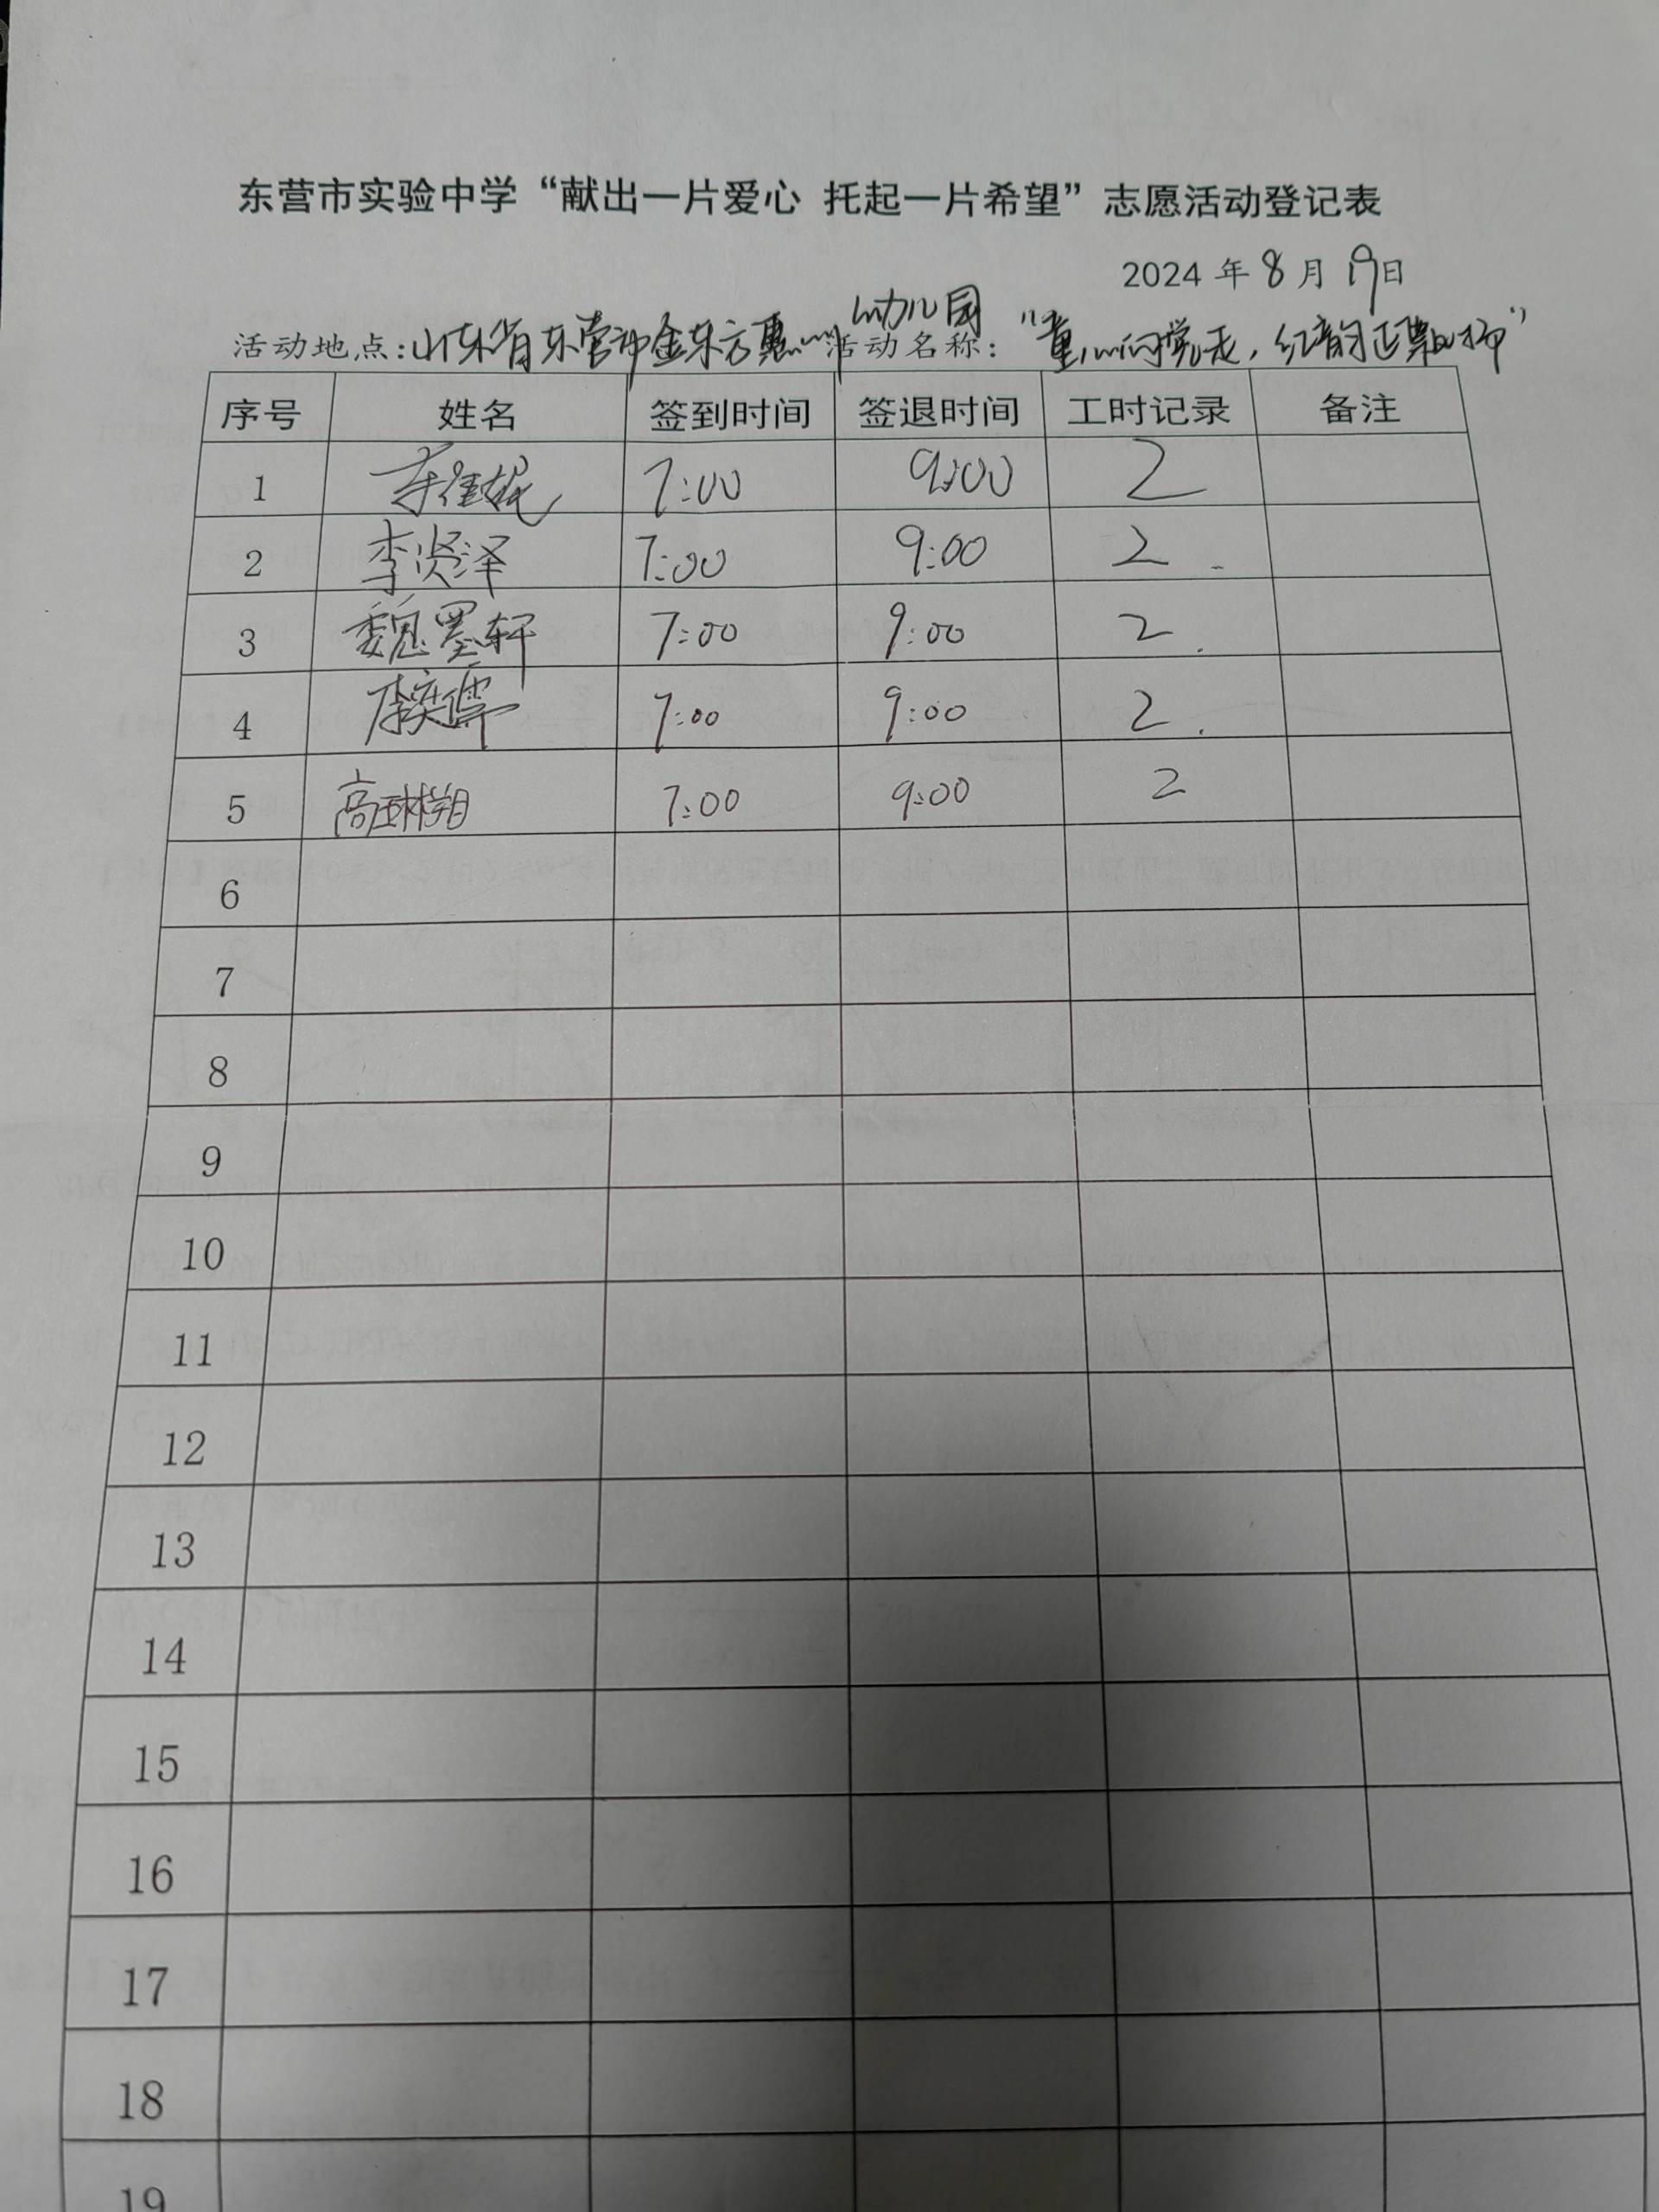 东营市实验中学“献出一片爱心 托起一片希望”志愿活动登记表
2024 年 8 月 19日
活动地点:山东省东营市金东方惠州幼儿园 活动名称:“童心向党走,红韵正飘扬”
序号 姓名 签到时间 签退时间 工时记录 备注
1 7:00 9:00 2
2 李贤泽 7:00 9:00 2
3 魏墨轩 7:00 9:00 2
4 李奕儒 7:00 9:00 2
5 高琳翔 7:00 9:00 2
6
7
8
9
10
11
12
13
14
15
16
17
18
19